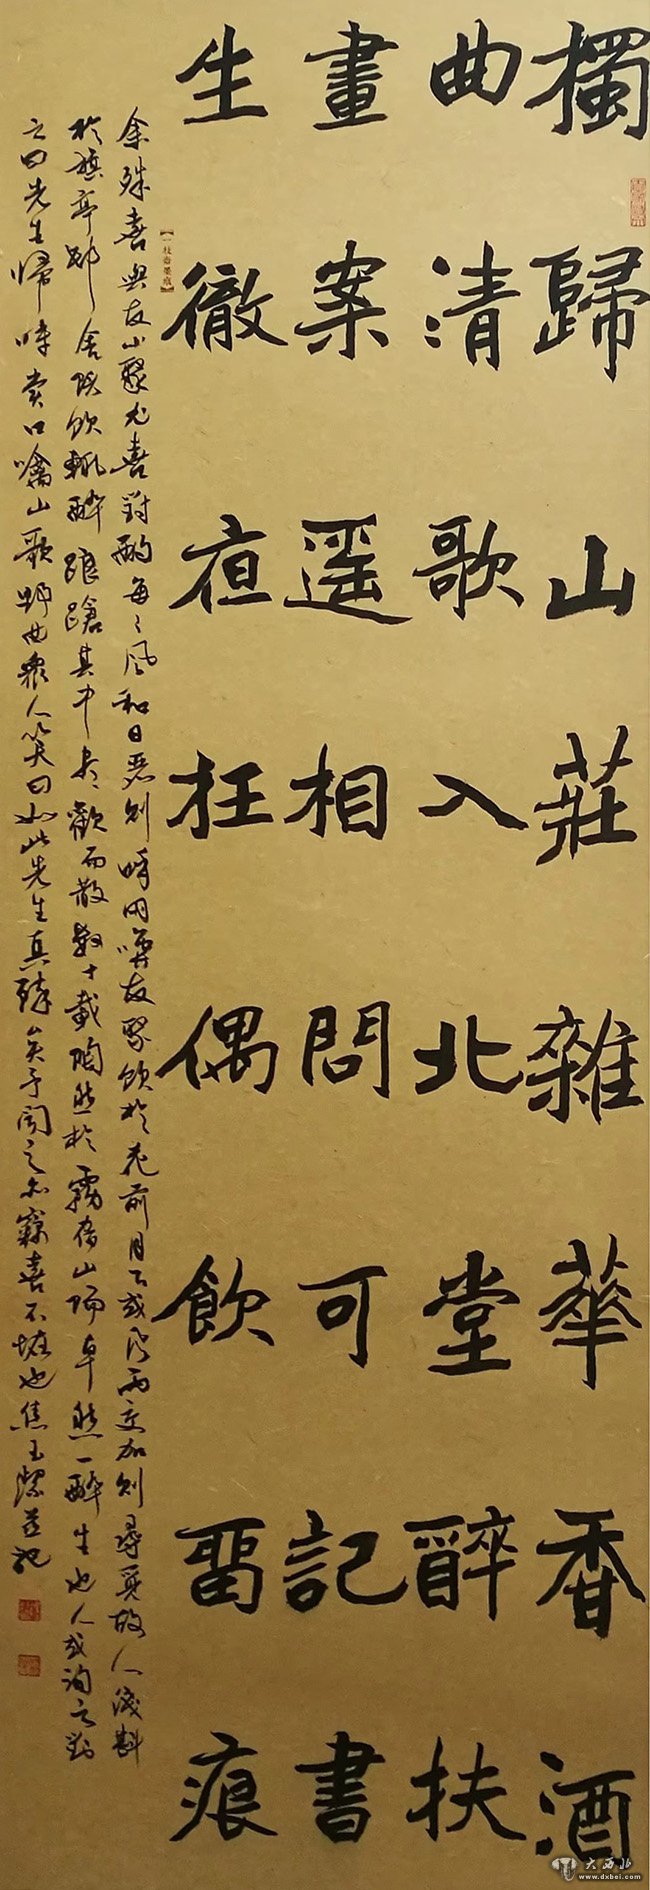 獨歸山莊雜華香酒
曲清歌入北堂醉扶
畫案遥相問可記書
生徹夜狂偶飲留痕
余殊喜與友小聚尤喜對酌每々風和日麗則呼朋喚友聚飲於花前月下或風雨交加則尋覓故人淺斟
於旗亭邨舍飲輒醉踉蹌其中盡歡而散數十載陶然於霧宿山陽卓然一醉生也人或詢之對
之曰先生歸時口噙山歌野曲眾人笑曰如此先生真醉矣予聞之亦竊喜不也焦玉並記
大西北
www.dxbei.com